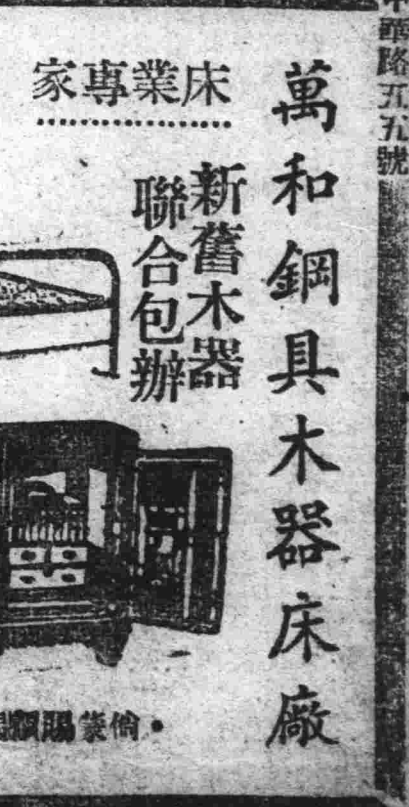 中華路五五號
萬和鋼具木器床廠
床業專家
新舊木器
聯合包辦
倘蒙賜顧